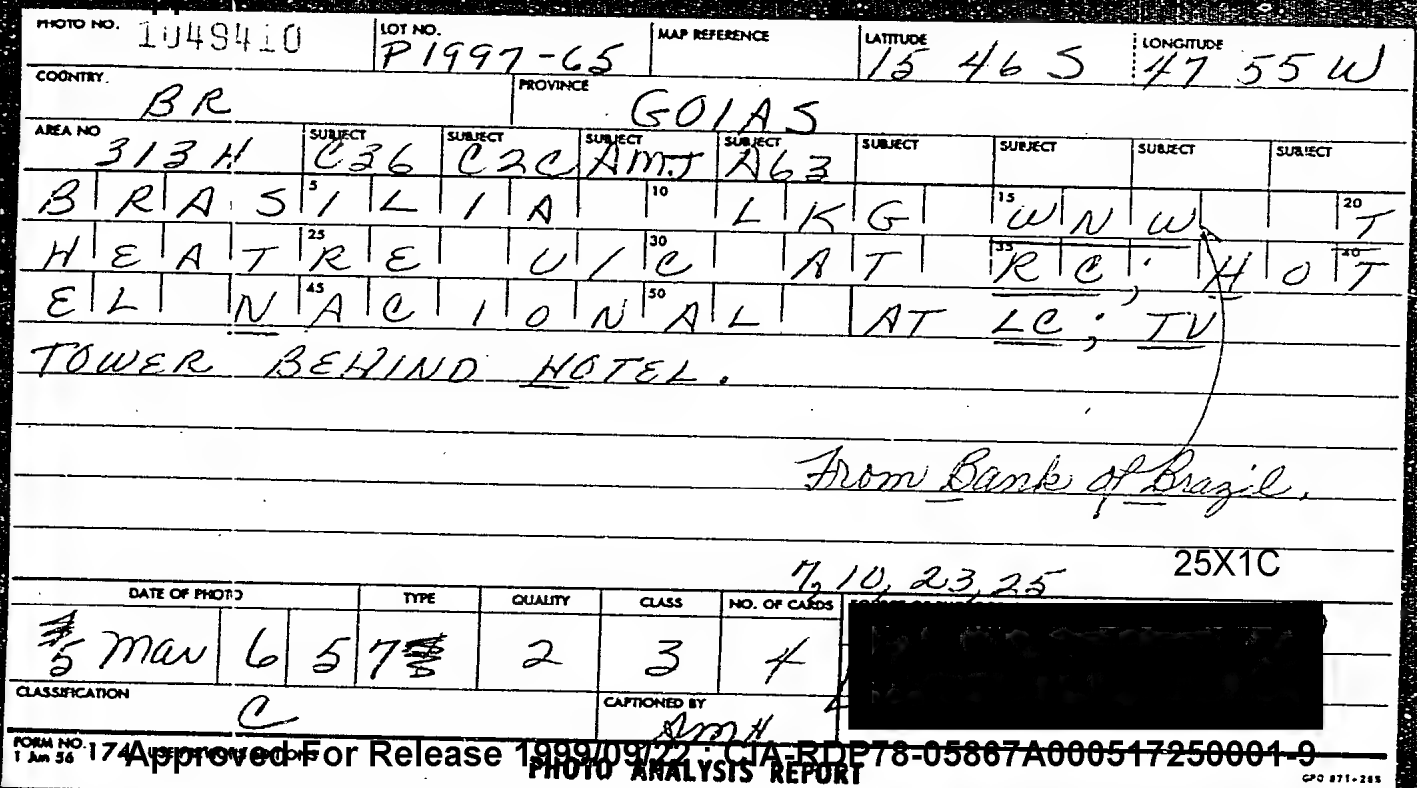 PHOTO NO. 1049410 LOT NO. P1997-65 MAP REFERENCE LATITUDE 15 46 S LONGITUDE 47 55 W
COUNTRY. BR PROVINCE GOIAS
AREA NO 313H SUBJECT C36 SUBJECT C2C SUBJECT AMJ SUBJECT A63 SUBJECT SUBJECT SUBJECT SUBJECT
BRASILIA LKG WNW T
5 10 15 20
HEATRE U/C AT RC; HOT
25 30 35 40
EL NACIONAL AT LC; TV
45 50
TOWER BEHIND HOTEL.
From Bank of Brazil.
25X1C
7, 10, 23, 25
DATE OF PHOTO TYPE QUALITY CLASS NO. OF CARDS
5 Mar 65 7 2 3 4
CLASSIFICATION C CAPTIONED BY AMH
FORM NO. 174
1 Jun 56
Approved For Release 1999/09/22 : CIA-RDP78-05867A000517250001-9
PHOTO ANALYSIS REPORT
GPO 871-285